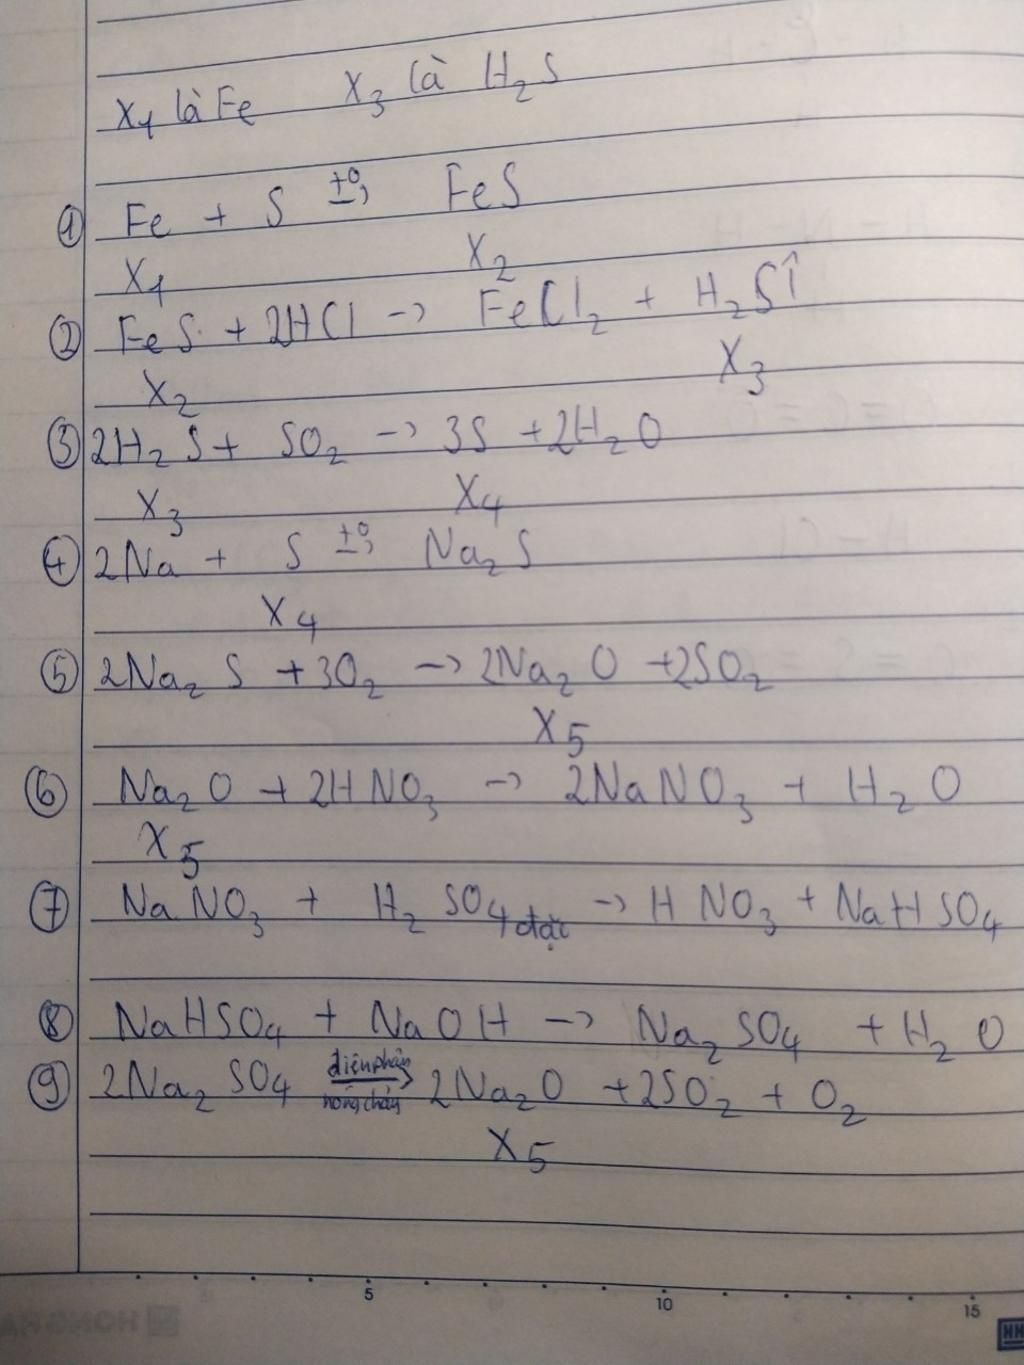 X₁ là Fe X₃ là H₂S
① Fe + S t°→ FeS
X₁ X₂
② FeS + 2HCl → FeCl₂ + H₂S↑
X₂ X₃
③ 2H₂S + SO₂ → 3S + 2H₂O
X₃ X₄
④ 2Na + S t°→ Na₂S
X₄
⑤ 2Na₂S + 3O₂ → 2Na₂O + 2SO₂
X₅
⑥ Na₂O + 2HNO₃ → 2NaNO₃ + H₂O
X₅
⑦ NaNO₃ + H₂SO₄ đặc → HNO₃ + NaHSO₄
⑧ NaHSO₄ + NaOH → Na₂SO₄ + H₂O
⑨ 2Na₂SO₄ điện phân nóng chảy → 2Na₂O + 2SO₂ + O₂
X₅
5 10 15